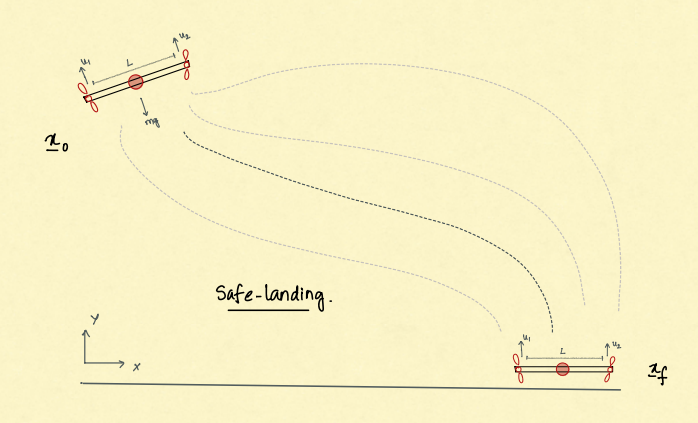 u₂
u₁
L
mg
x₀
Safe-landing.
y
x
u₁
u₂
L
x_f